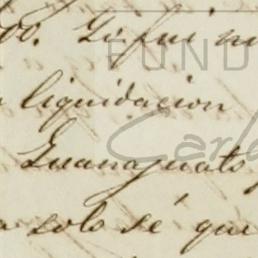 00. Si fui
FUND
liquidacion
Carl
Guanajuato
solo sé que